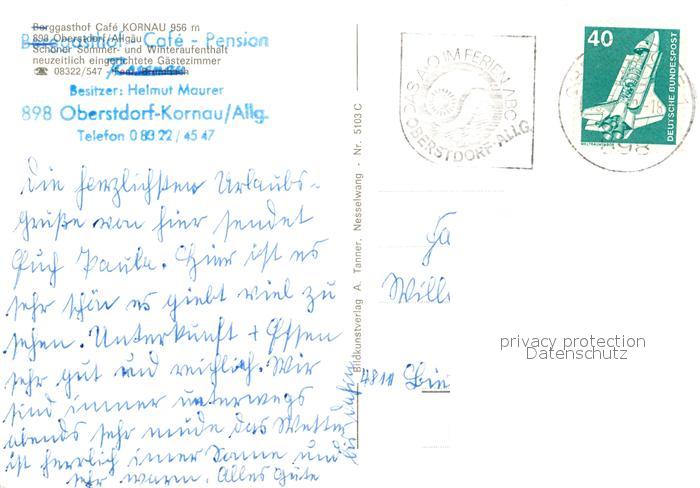 Berggasthof Café KORNAU 956 m
898 Oberstdorf/Allgäu
Schöner Sommer- und Winteraufenthalt
neuzeitlich eingerichtete Gästezimmer
☎ 08322/547
Berggasthof - Café - Pension
Kornau
Besitzer: Helmut Maurer
898 Oberstdorf-Kornau/Allg.
Telefon 0 83 22 / 45 47
Die herzlichsten Urlaubs-
grüße von hier sendet
Euch Paula. Hier ist es
sehr schön es giebt viel zu
sehen. Unterkunft + Essen
sehr gut und reichlich. Wir
sind immer unterwegs
abends sehr müde das Wetter
ist herrlich immer Sonne und
sehr warm. Alles Gute
bis dahin
Bildkunstverlag A. Tanner, Nesselwang - Nr. 5103 C
DAS A-O IM FERIEN-ABC
OBERSTDORF-ALLG.
40
DEUTSCHE BUNDESPOST
WELTRAUMLABOR
898
Fa
Will
4811 Bie
privacy protection
Datenschutz